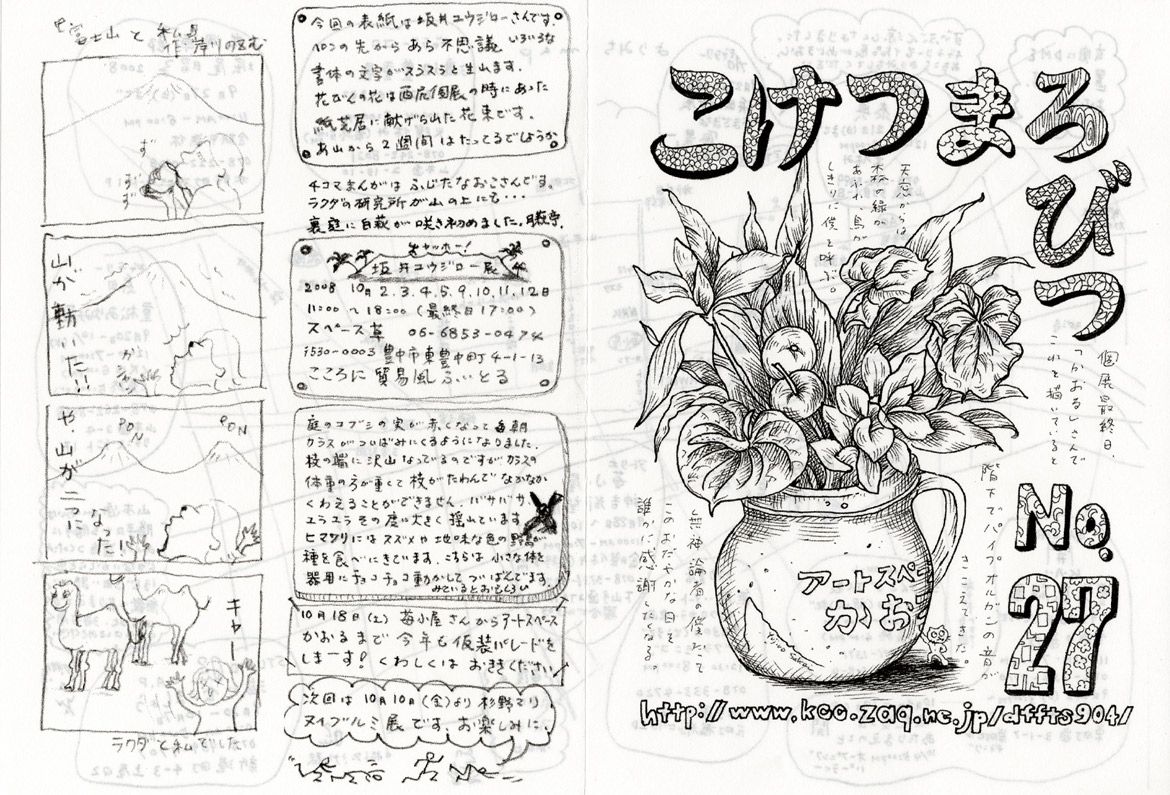 富士山と私
今回の表紙は坂井ユウジローさんです。
ペンの先からあら不思議 いろいろな
書体の文字がスラスラと生出ます。
花びんの花は西尻個展の時にあった
紙芝居に献げられた花束です。
チコマまんがは ふじたなおこさんです。
ラクダの研究所が山の上にも…
裏庭に白萩が咲き初めました。
キャッホー!
坂井ユウジロー展
2008 10月 2.3.4.5.9.10.11.12日
11:00〜18:00 (最終日17:00)
スペース草 06-6853-0474
〒530-0003 豊中市東豊中町4-1-13
こころに 貿易風 ふいとる
庭のコブシの実が赤くなって毎朝
カラスがついばみにくるようになりました。
枝の端に沢山なっているのですがカラスの
体重の方が重くて枝がたわんでなかなか
くわえることができません。バサバサ、
ユラユラその度に大きく揺れています。
ヒマワリにはスズメや地味な色の野鳥が
種を食べにきています。こちらは小さな体を
器用にチョコチョコ動かしてついばんでます。
みているとおもしろい
10月18日(土) 苺小屋さんからアートスペース
かおるまで 今年も仮装パレードを
しまーす! くわしくは おききください
次回は 10月10日(金)より 杉野マリ
ヌイグルミ展です。お楽しみに。
ず
ずず
山が動いた!!
や、山が二つになった!
PON
PON
キャー
ラクダと私でした
こけつまろびつ
天窓からは
森の緑が
あふれ鳥が
しきりに僕を呼ぶ。
個展最終日、
「かおる」さんで
これを描いていると
階下でパイプオルガンの音が
きこえてきた。
無神論者の僕だって
このおだやかな一日を
誰かに感謝したくなる。
アートスペー
かお
No.
27
http://www.kcc.zaq.ne.jp/dffts904/